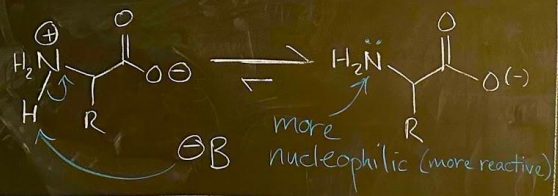 ⊕ O O
H₂N O⊖ H₂N̈ O(-)
H R R
⊖B
more
nucleophilic (more reactive)